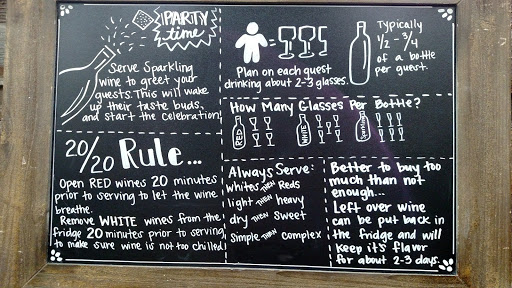 PARTY
time
Serve Sparkling
wine to greet your
guests. This will wake
up their taste buds,
and start the celebration!
Plan on each guest
drinking about 2-3 glasses.
Typically
1/2 - 3/4
of a bottle
per guest.
How Many Glasses Per Bottle?
RED
WHITE
Sparkling
20/20 Rule...
Open RED wines 20 minutes
prior to serving to let the wine
breathe.
Remove WHITE wines from the
fridge 20 minutes prior to serving
to make sure wine is not too chilled
Always Serve:
whites THEN Reds
light THEN heavy
dry THEN sweet
simple THEN complex
Better to buy too
much than not
enough...
Left over wine
can be put back in
the fridge and will
keep it's flavor
for about 2-3 days.